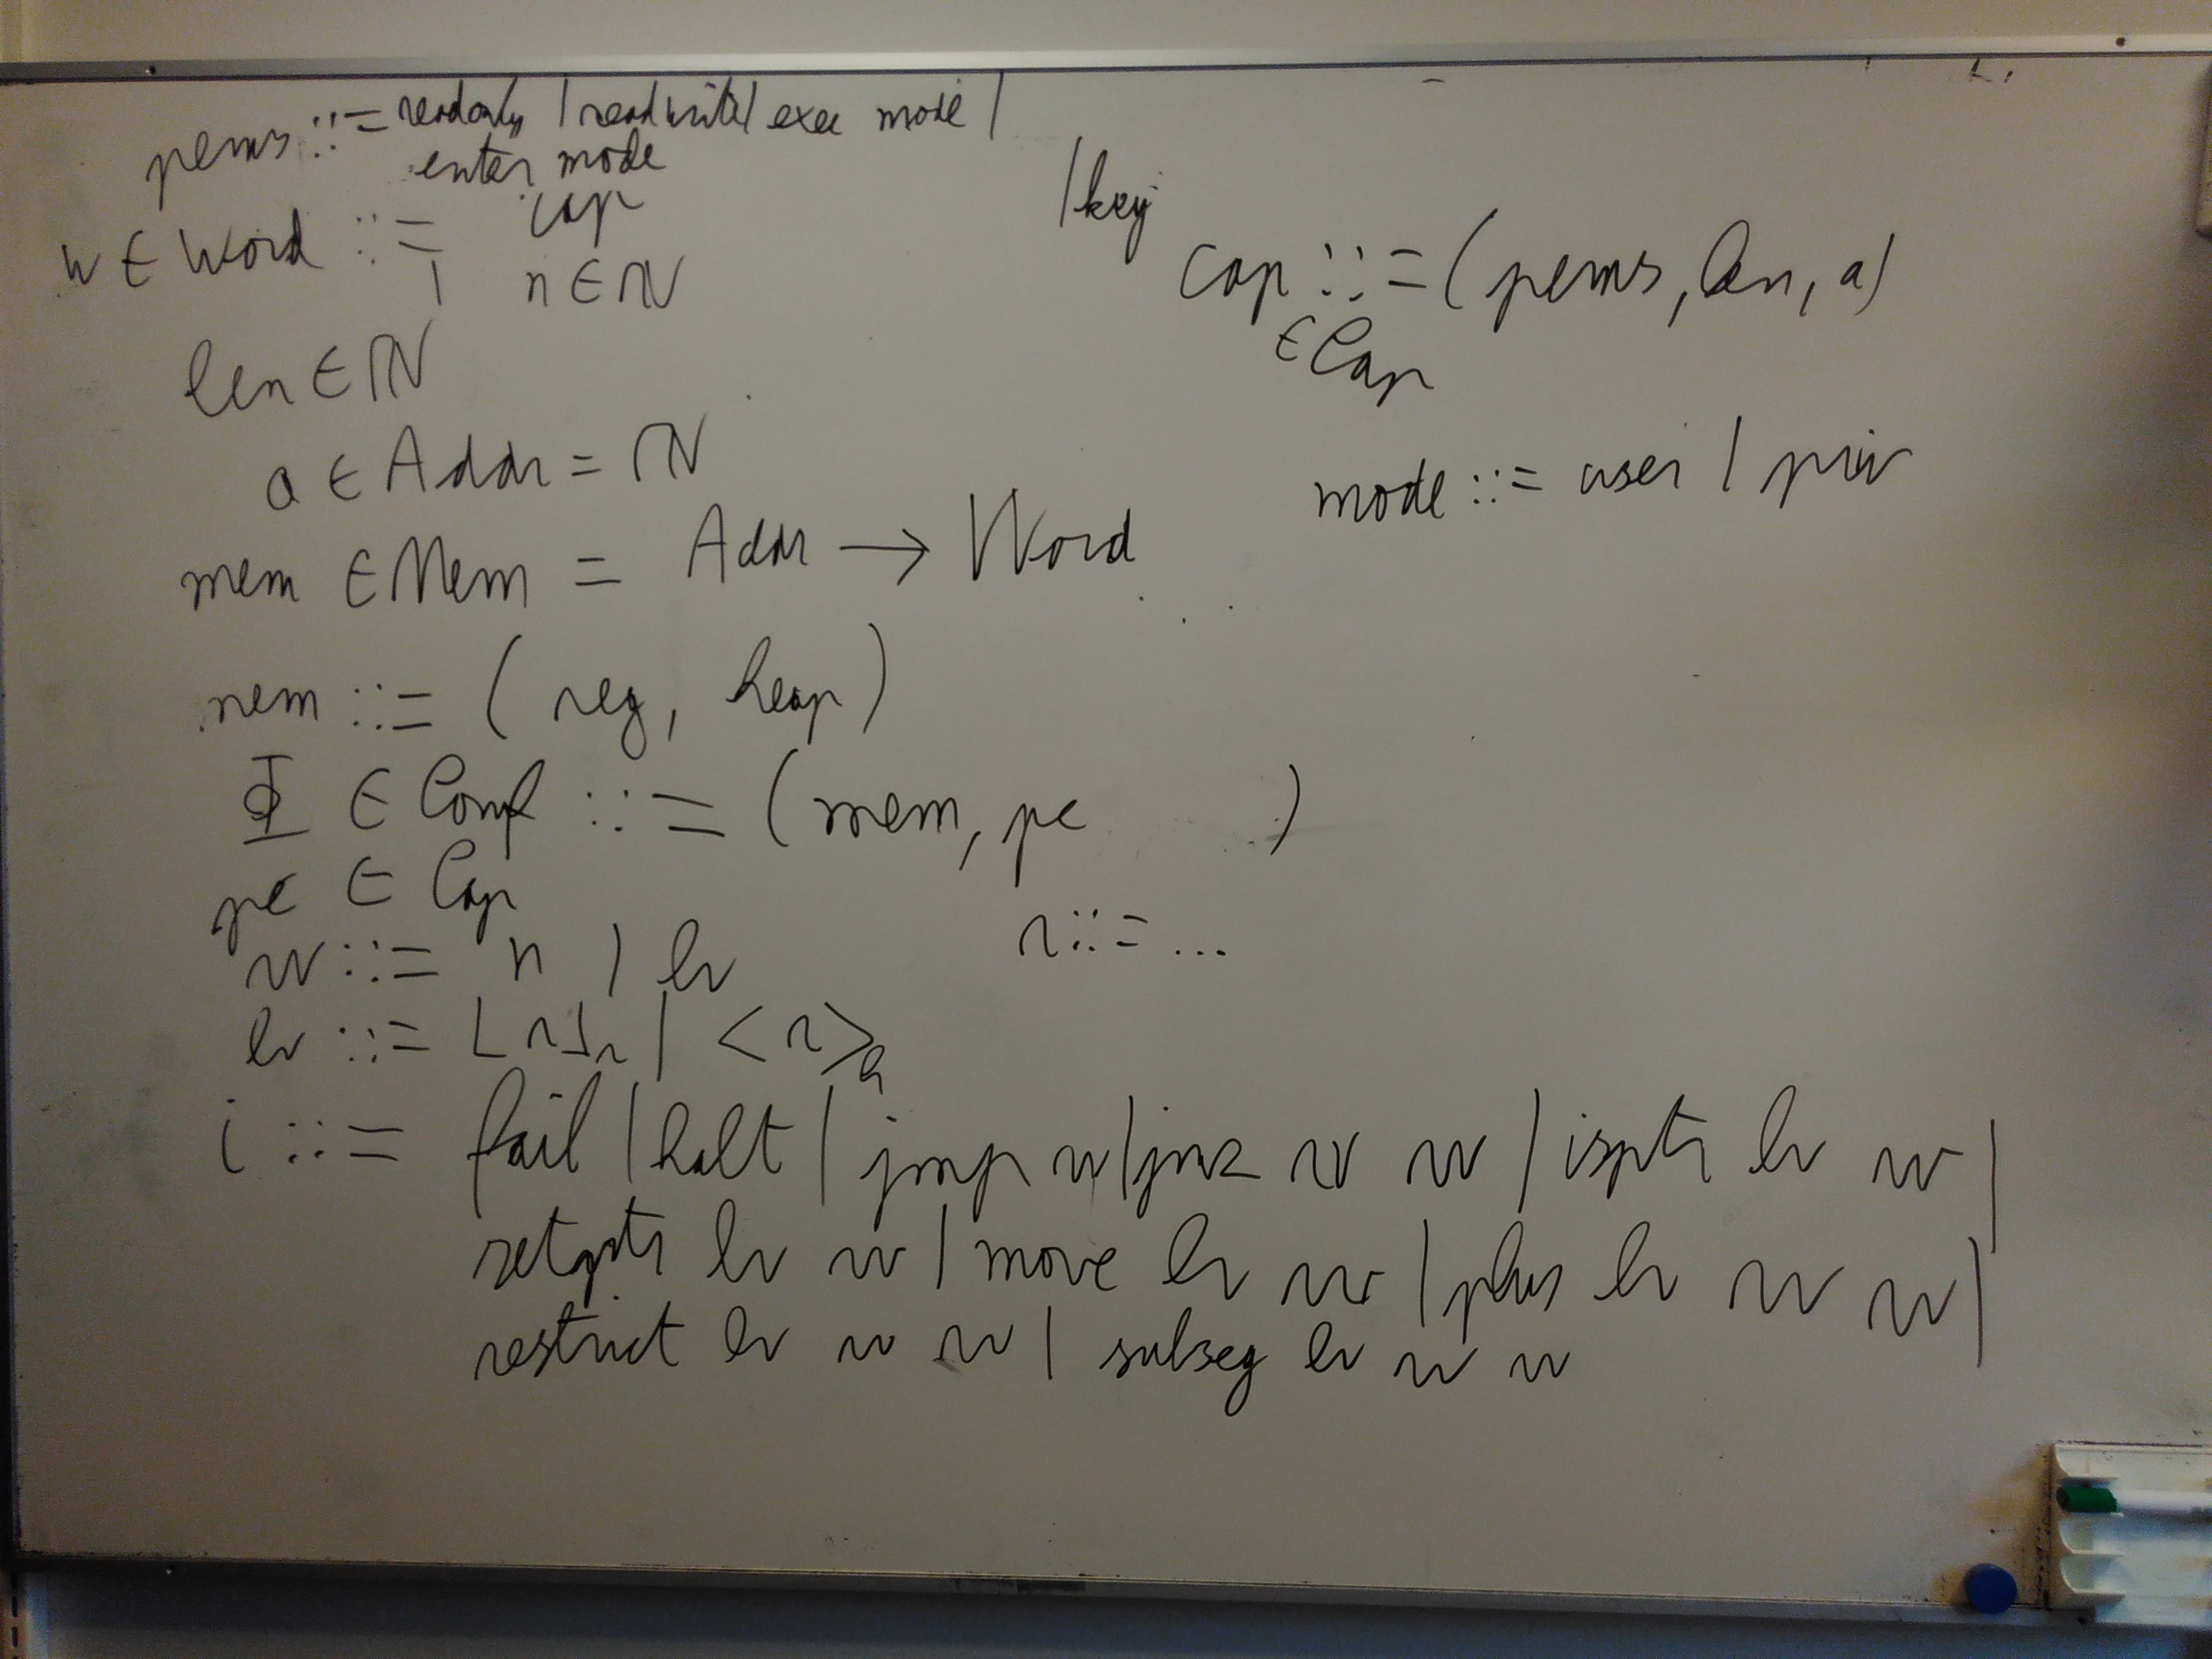 perms ::= readonly | readwrite | exec mode |
enter mode
| key
w ∈ Word ::= cap
| n ∈ ℕ
cap ::= (perms, len, a)
∈ Cap
len ∈ ℕ
a ∈ Addr = ℕ
mode ::= user | priv
mem ∈ Mem = Addr → Word
mem ::= (reg, heap)
Φ ∈ Conf ::= (mem, pc )
pc ∈ Cap
r ::= ...
rv ::= n | lv
lv ::= ⌊r⌋r | <r>h
i ::= fail | halt | jmp rv | jnz rv rv | isptr lv rv |
setptr lv rv | move lv rv | plus lv rv rv |
restrict lv rv rv | subseg lv rv rv